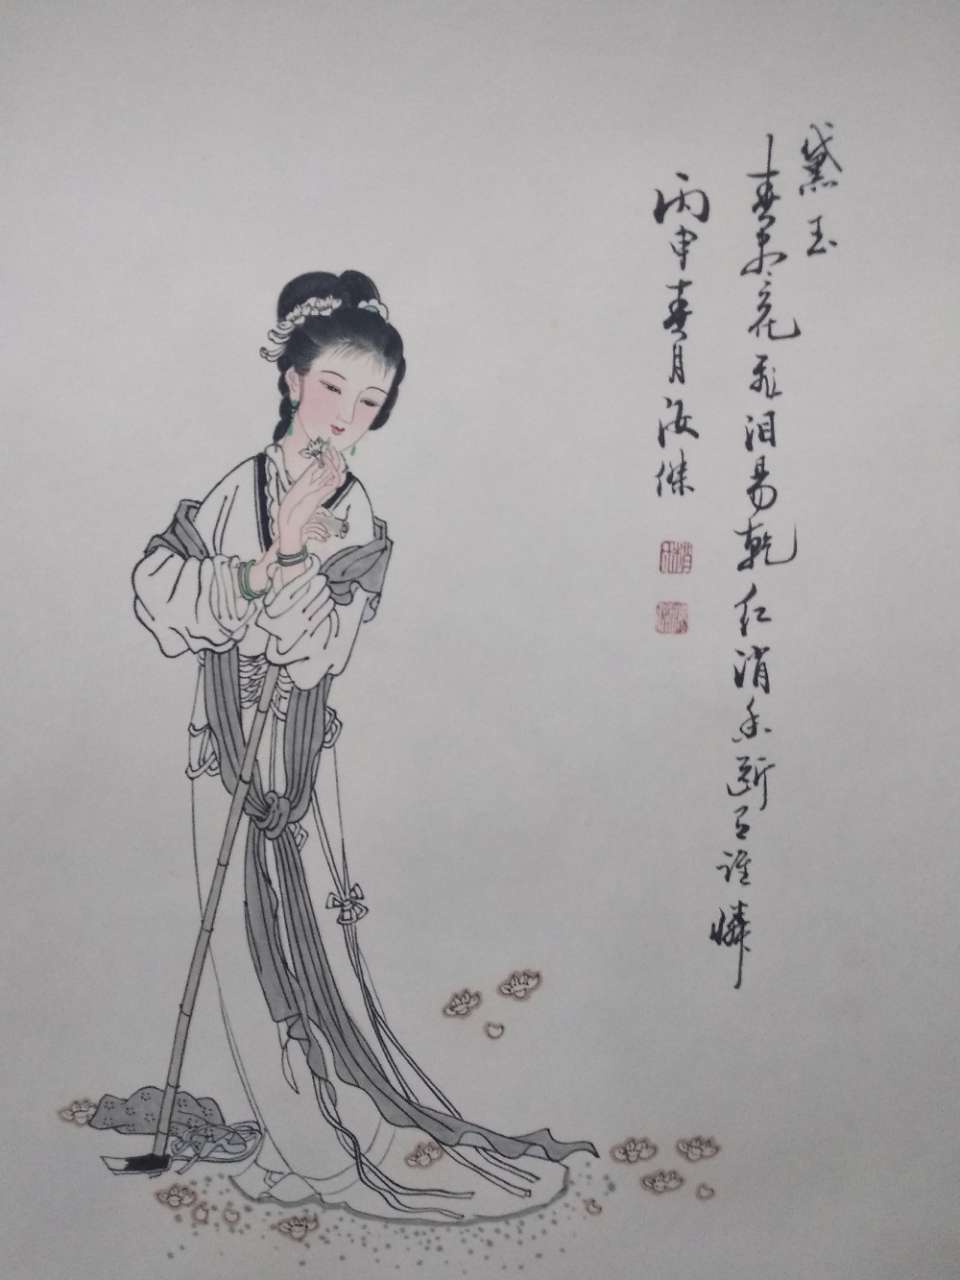 黛玉
春花飛泪易乾红消香断有谁憐
丙申春月汝傑